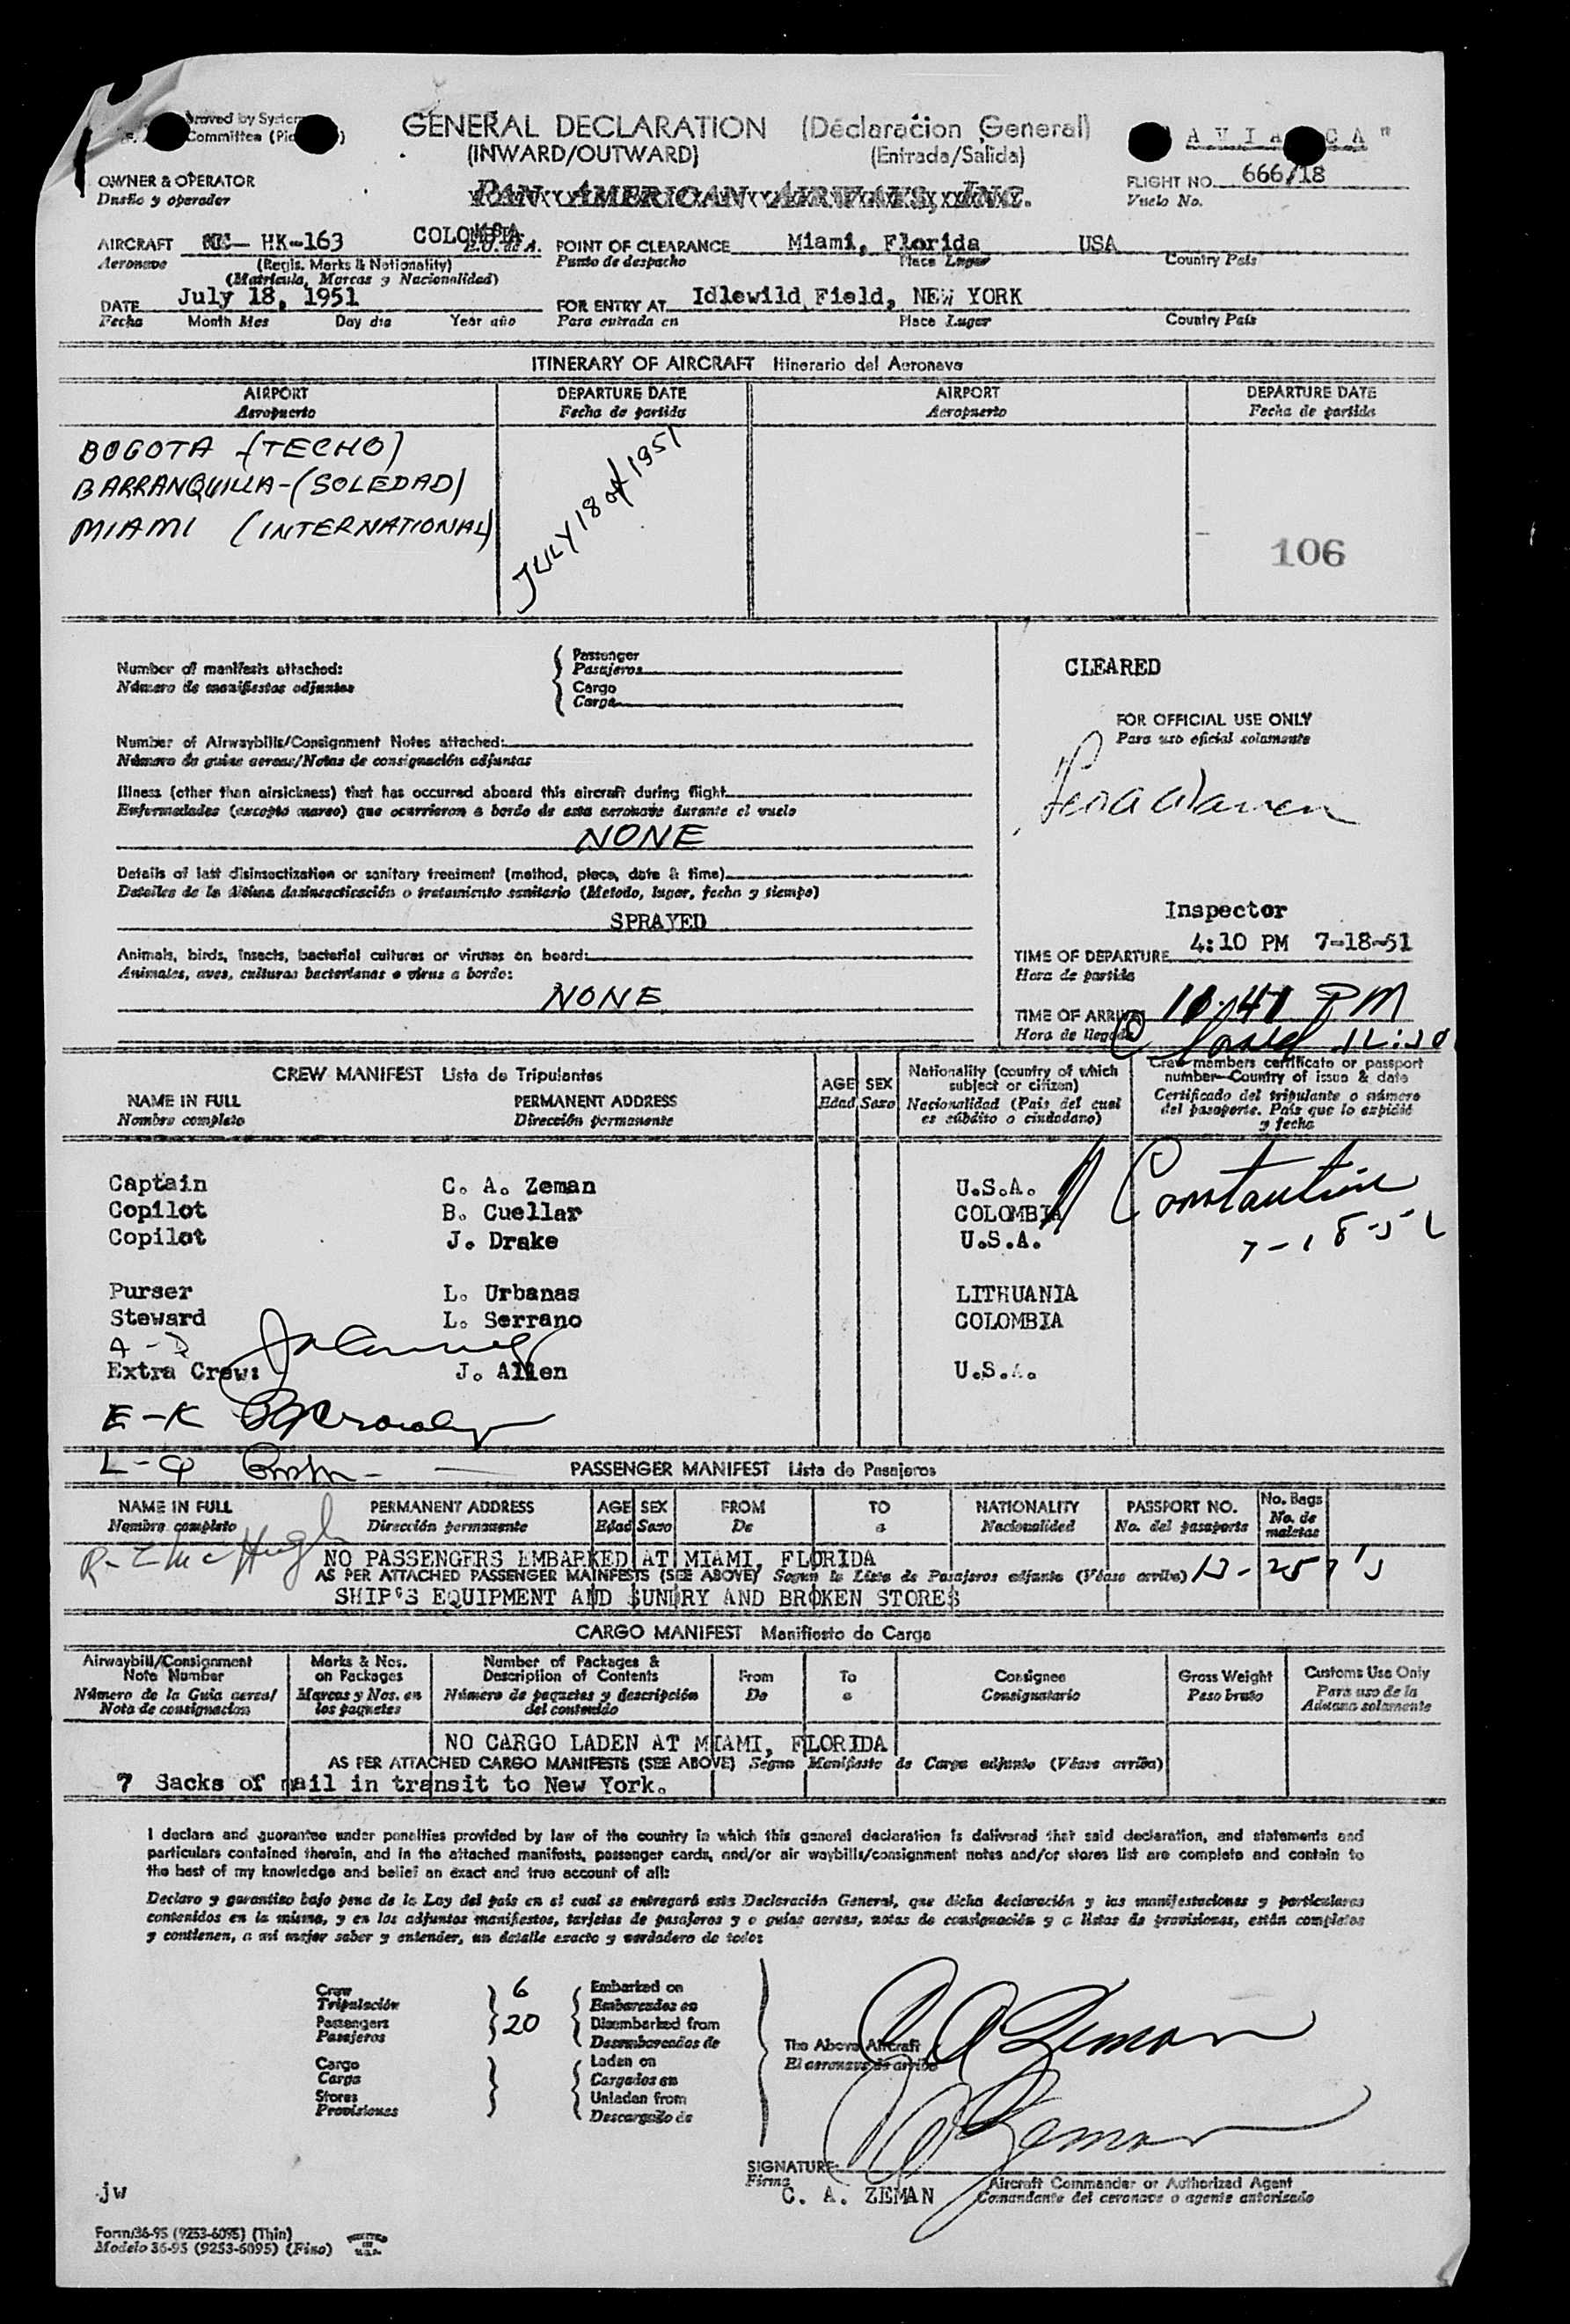 roved by System
Committee (Pic
GENERAL DECLARATION (Declaracion General)
(INWARD/OUTWARD) (Entrada/Salida)
" A V I A CA "
OWNER & OPERATOR
Dueño y operador
PAN AMERICAN AIRWAYS, INC.
FLIGHT NO. 666/18
Vuelo No.
AIRCRAFT NC- HK-163 COLOMBIA E.U. de A.
Aeronave (Regis. Marks & Nationality)
(Matricula, Marcas y Nacionalidad)
POINT OF CLEARANCE Miami, Florida USA
Punto de despacho Place Lugar Country País
DATE July 18, 1951
Fecha Month Mes Day dia Year año
FOR ENTRY AT Idlewild Field, NEW YORK
Para entrada en Place Lugar Country País
ITINERARY OF AIRCRAFT Itinerario del Aeronave
AIRPORT DEPARTURE DATE AIRPORT DEPARTURE DATE
Aeropuerto Fecha de partida Aeropuerto Fecha de partida
BOGOTA -(TECHO)
BARRANQUILLA-(SOLEDAD)
MIAMI (INTERNATIONAL)
JULY 18 of 1951
106
Number of manifests attached:
Número de manifiestos adjuntos
Passenger
Pasajeros
Cargo
Carga
Number of Airwaybills/Consignment Notes attached:
Número de guias aereas/Notas de consignación adjuntas
Illness (other than airsickness) that has occurred aboard this aircraft during flight
Enfermedades (excepto mareo) que ocurrieron a bordo de esta aeronave durante el vuelo
NONE
Details of last disinsectization or sanitary treatment (method, place, date & time)
Detalles de la última desinsectización o tratamiento sanitario (Metodo, lugar, fecha y tiempo)
SPRAYED
Animals, birds, insects, bacterial cultures or viruses on board:
Animales, aves, culturas bacterianas o virus a bordo:
NONE
CLEARED
FOR OFFICIAL USE ONLY
Para uso oficial solamente
Inspector
TIME OF DEPARTURE 4:10 PM 7-18-51
Hora de partida
TIME OF ARRIVAL PM
Hora de llegada
CREW MANIFEST Lista de Tripulantes
NAME IN FULL PERMANENT ADDRESS
Nombre completo Dirección permanente
AGE SEX
Edad Sexo
Nationality (country of which
subject or citizen)
Nacionalidad (País del cual
es súbdito o ciudadano)
Crew members certificate or passport
number—Country of issue & date
Certificado del tripulante o número
del pasaporte. País que lo expidió
y fecha
Captain C. A. Zeman U.S.A.
Copilot B. Cuellar COLOMBIA
Copilot J. Drake U.S.A.
Constantine
7-18-51
Purser L. Urbanas LITHUANIA
Steward L. Serrano COLOMBIA
A-D
Extra Crew: J. Allen U.S.A.
E-K
L-Q
PASSENGER MANIFEST Lista de Pasajeros
NAME IN FULL PERMANENT ADDRESS AGE SEX FROM TO NATIONALITY PASSPORT NO. No. Bags
Nombre completo Dirección permanente Edad Sexo De a Nacionalidad No. del pasaporte No. de maletas
R-Z McHugh
NO PASSENGERS EMBARKED AT MIAMI, FLORIDA
AS PER ATTACHED PASSENGER MAINFESTS (SEE ABOVE) Segun la Lista de Pasajeros adjunta (Véase arriba)
SHIP'S EQUIPMENT AND SUNDRY AND BROKEN STORES
CARGO MANIFEST Manifiesto de Carga
Airwaybill/Consignment
Note Number
Número de la Guia aerea/
Nota de consignacion
Marks & Nos.
on Packages
Marcas y Nos. en
los paquetes
Number of Packages &
Description of Contents
Número de paquetes y descripción
del contenido
From
De
To
a
Consignee
Consignatario
Gross Weight
Peso bruto
Customs Use Only
Para uso de la
Aduana solamente
NO CARGO LADEN AT MIAMI, FLORIDA
AS PER ATTACHED CARGO MANIFESTS (SEE ABOVE) Segun Manifiesto de Carga adjunto (Véase arriba)
7 Sacks of mail in transit to New York.
I declare and guarantee under penalties provided by law of the country in which this general declaration is delivered that said declaration, and statements and
particulars contained therein, and in the attached manifests, passenger cards, and/or air waybills/consignment notes and/or stores list are complete and contain to
the best of my knowledge and belief an exact and true account of all:
Declaro y garantizo bajo pena de la Ley del país en el cual se entregará esta Declaración General, que dicha declaración y las manifestaciones y particulares
contenidos en la misma, y en los adjuntos manifiestos, tarjetas de pasajeros y o guias aereas, notas de consignación y o listas de provisiones, están completos
y contienen, a mi mejor saber y entender, un detalle exacto y verdadero de todo:
Crew 6 Embarked on
Tripulación Embarcados en
Passengers 20 Disembarked from
Pasajeros Desembarcados de
Cargo Laden on
Carga Cargados en
Stores Unladen from
Provisiones Descargado de
The Above Aircraft
El aeronave de arriba
C A Zeman
C A Zeman
SIGNATURE:
Firma
C. A. ZEMAN
Aircraft Commander or Authorized Agent
Comandante del aeronave o agente autorizado
jw
Form 36-95 (9253-6095) (Thin)
Modelo 36-95 (9253-6095) (Fino)
PRINTED
IN
U.S.A.